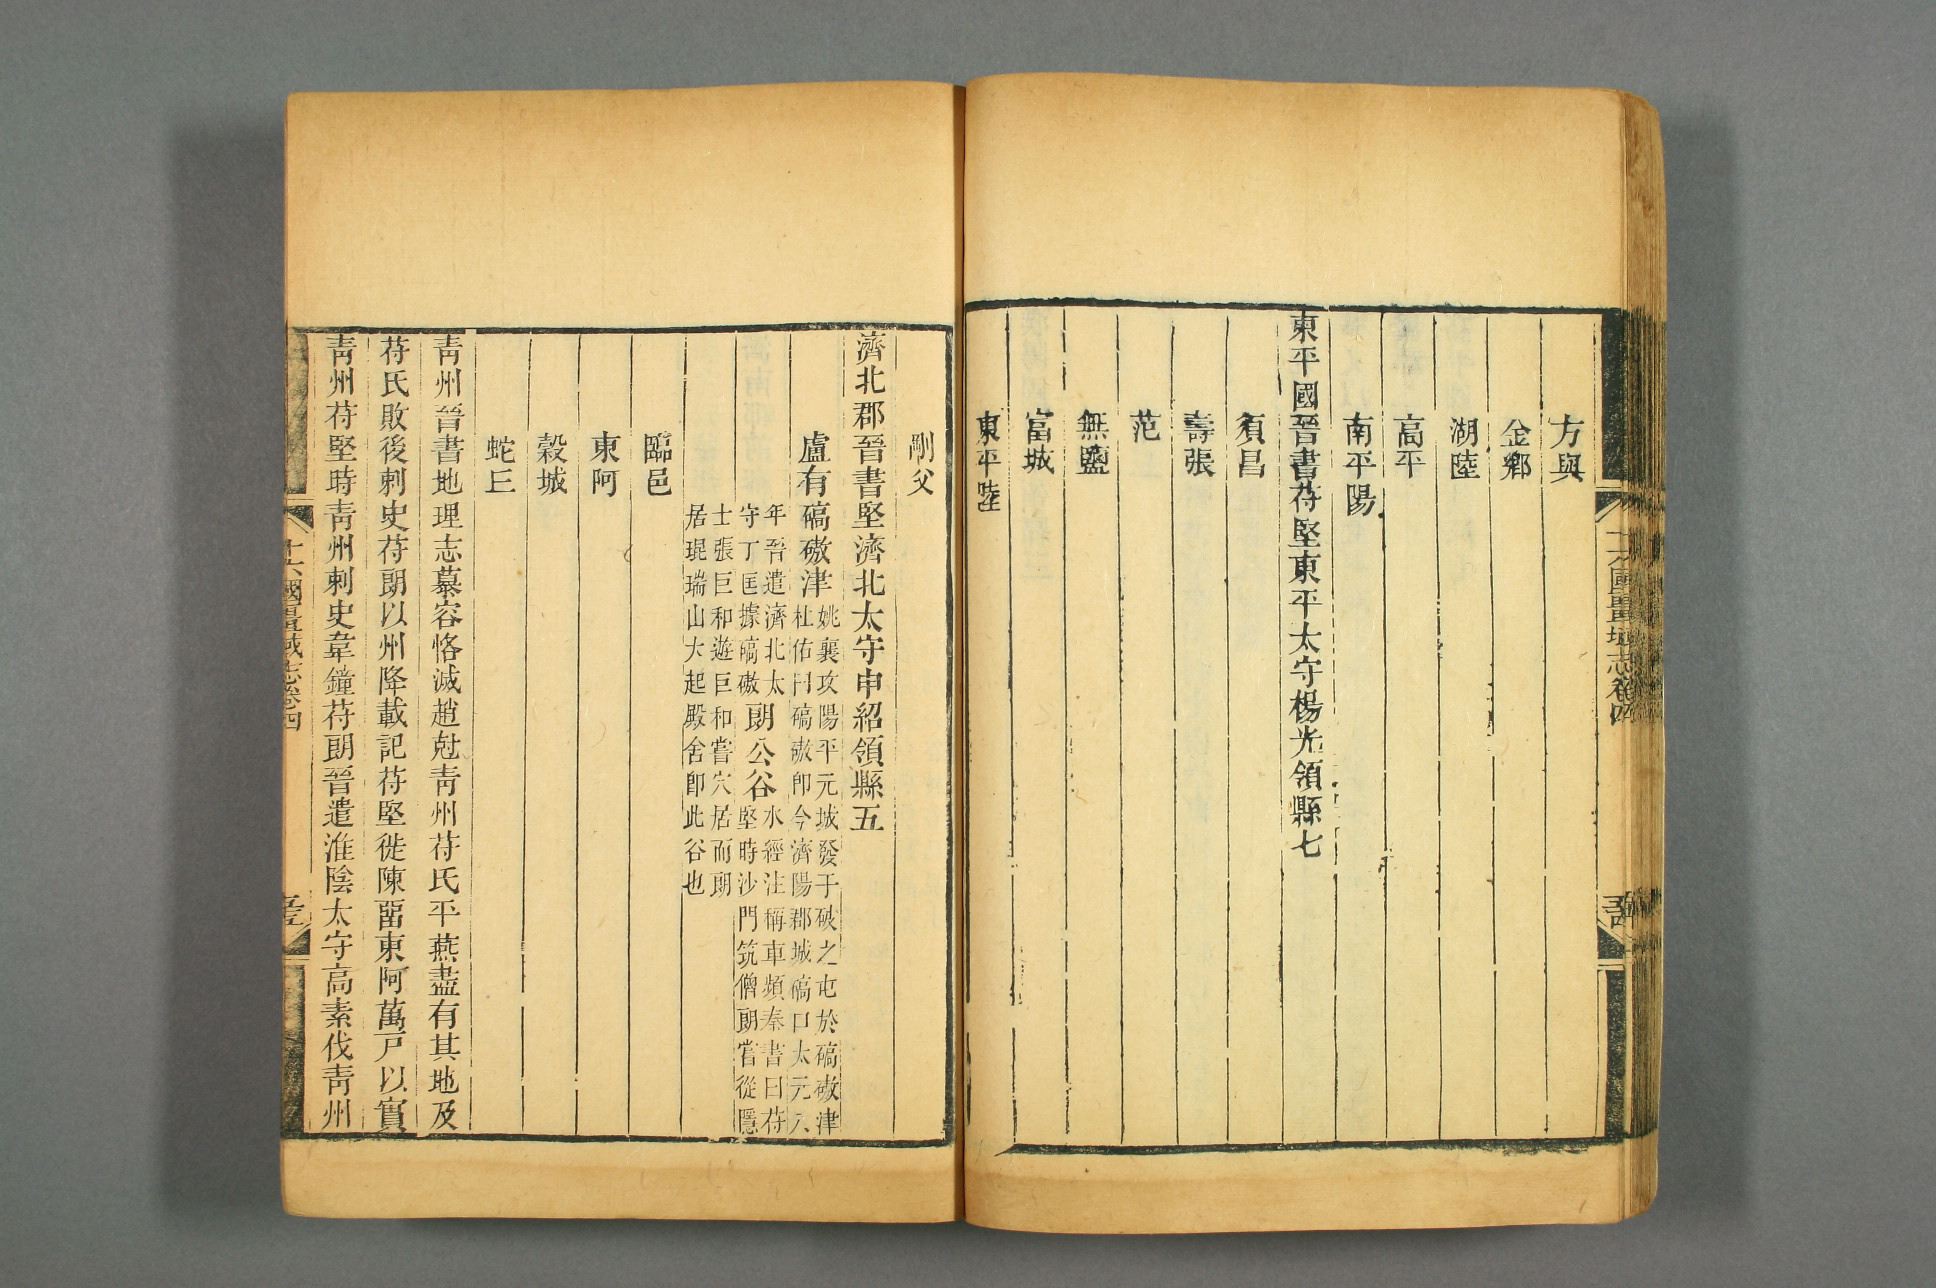 方與
金鄉
湖陸
高平
南平陽
東平國晉書苻堅東平太守楊光領縣七
須昌
壽張
范
無鹽
富城
東平陸
剛父
濟北郡晉書堅濟北太守申紹領縣五
盧有碻磝津姚襄攻陽平元城發于破之屯於碻磝津
杜佑曰碻磝卽今濟陽郡城碻口太元六
年晉遣濟北太
守丁匡據碻磝朗公谷水經注稱車頻秦書曰苻
堅時沙門筑僧朗嘗從隱
士張巨和遊巨和嘗穴居而朗
居琨瑞山大起殿舍卽此谷也
臨邑
東阿
穀城
蛇丘
青州晉書地理志慕容恪滅趙尅青州苻氏平燕盡有其地及
苻氏敗後刺史苻朗以州降載記苻堅徙陳畱東阿萬戸以實
青州苻堅時青州刺史韋鐘苻朗晉遣淮陰太守高素伐青州
十六國疆域志卷四